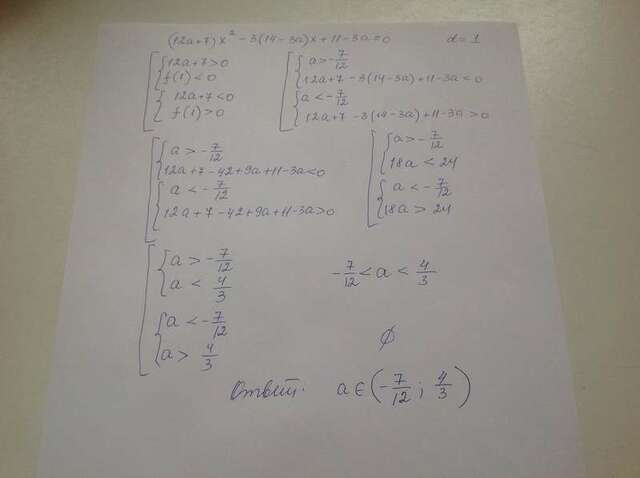 (12a+7)x² - 3(14-3a)x + 11-3a=0 d=1
[ { 12a+7>0
f(1)<0
{ 12a+7<0
f(1)>0
[ { a>-7/12
12a+7-3(14-3a)+11-3a<0
{ a<-7/12
12a+7-3(14-3a)+11-3a>0
[ { a>-7/12
12a+7-42+9a+11-3a<0
{ a<-7/12
12a+7-42+9a+11-3a>0
[ { a>-7/12
18a<24
{ a<-7/12
18a>24
[ { a>-7/12
a<4/3
-7/12<a<4/3
{ a<-7/12
a>4/3
∅
Ответ. a∈(-7/12; 4/3)